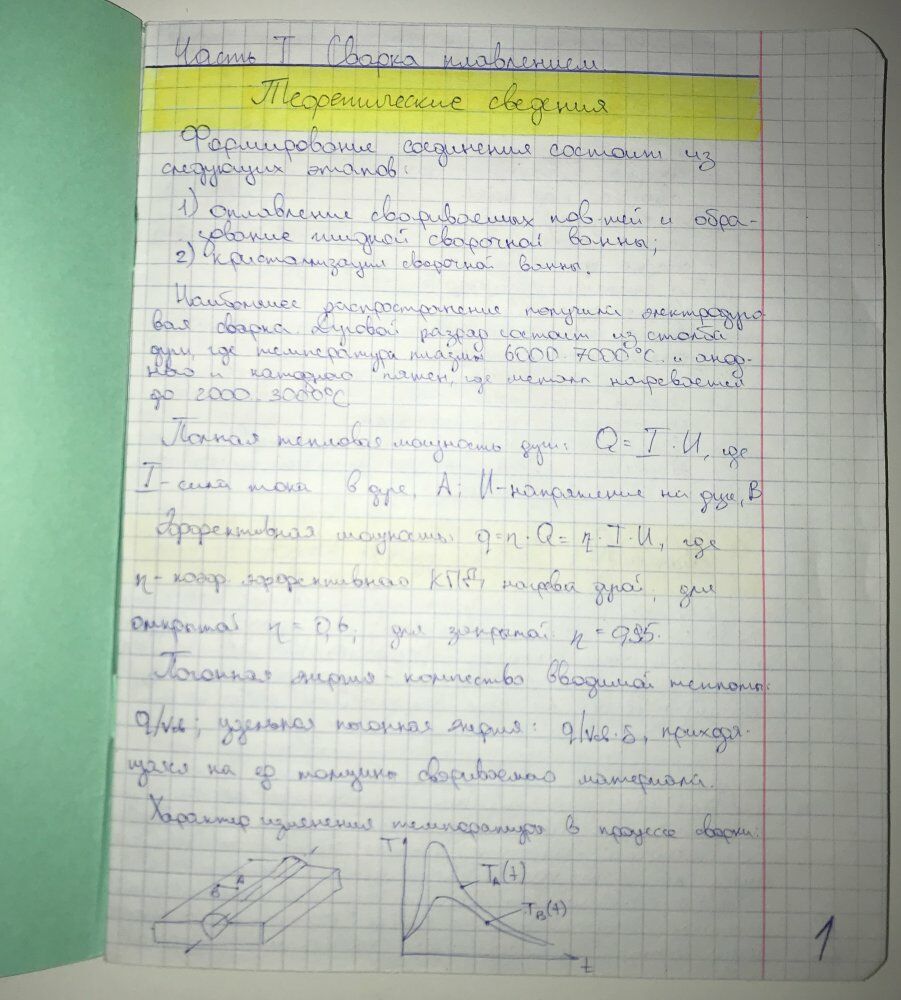 Часть I Сварка плавлением
Теоретические сведения
Формирование соединения состоит из
следующих этапов:
1) оплавление свариваемых пов-тей и обра-
зование жидкой сварочной ванны;
2) кристаллизация сварочной ванны.
Наибольшее распространение получила электродуго-
вая сварка. Дуговой разряд состоит из столба
дуги, где температура плазмы 6000..7000°С и анод-
ного и катодного пятен, где металл нагревается
до 2000..3000°С
Полная тепловая мощность дуги: Q = I · U, где
I - сила тока в дуге, А; U - напряжение на дуге, В
Эффективная мощность: q = η · Q = η · I · U, где
η - коэф. эффективного КПД нагрева дугой, для
открытой η = 0,6; для закрытой η = 0,95.
Погонная энергия - количество вводимой теплоты:
q/Vсв; удельная погонная энергия: q/Vсв·δ, приходя-
щаяся на ед толщины свариваемого материала.
Характер изменения температуры в процессе сварки:
B A
T
TA(t)
TB(t)
t
1